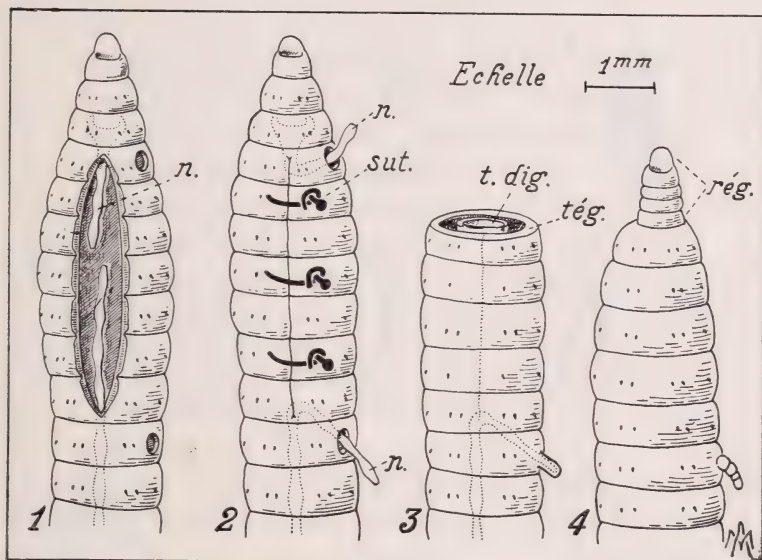 Echelle 1mm
n.
n.
sut.
t. dig.
tég.
rég.
n.
1 2 3 4